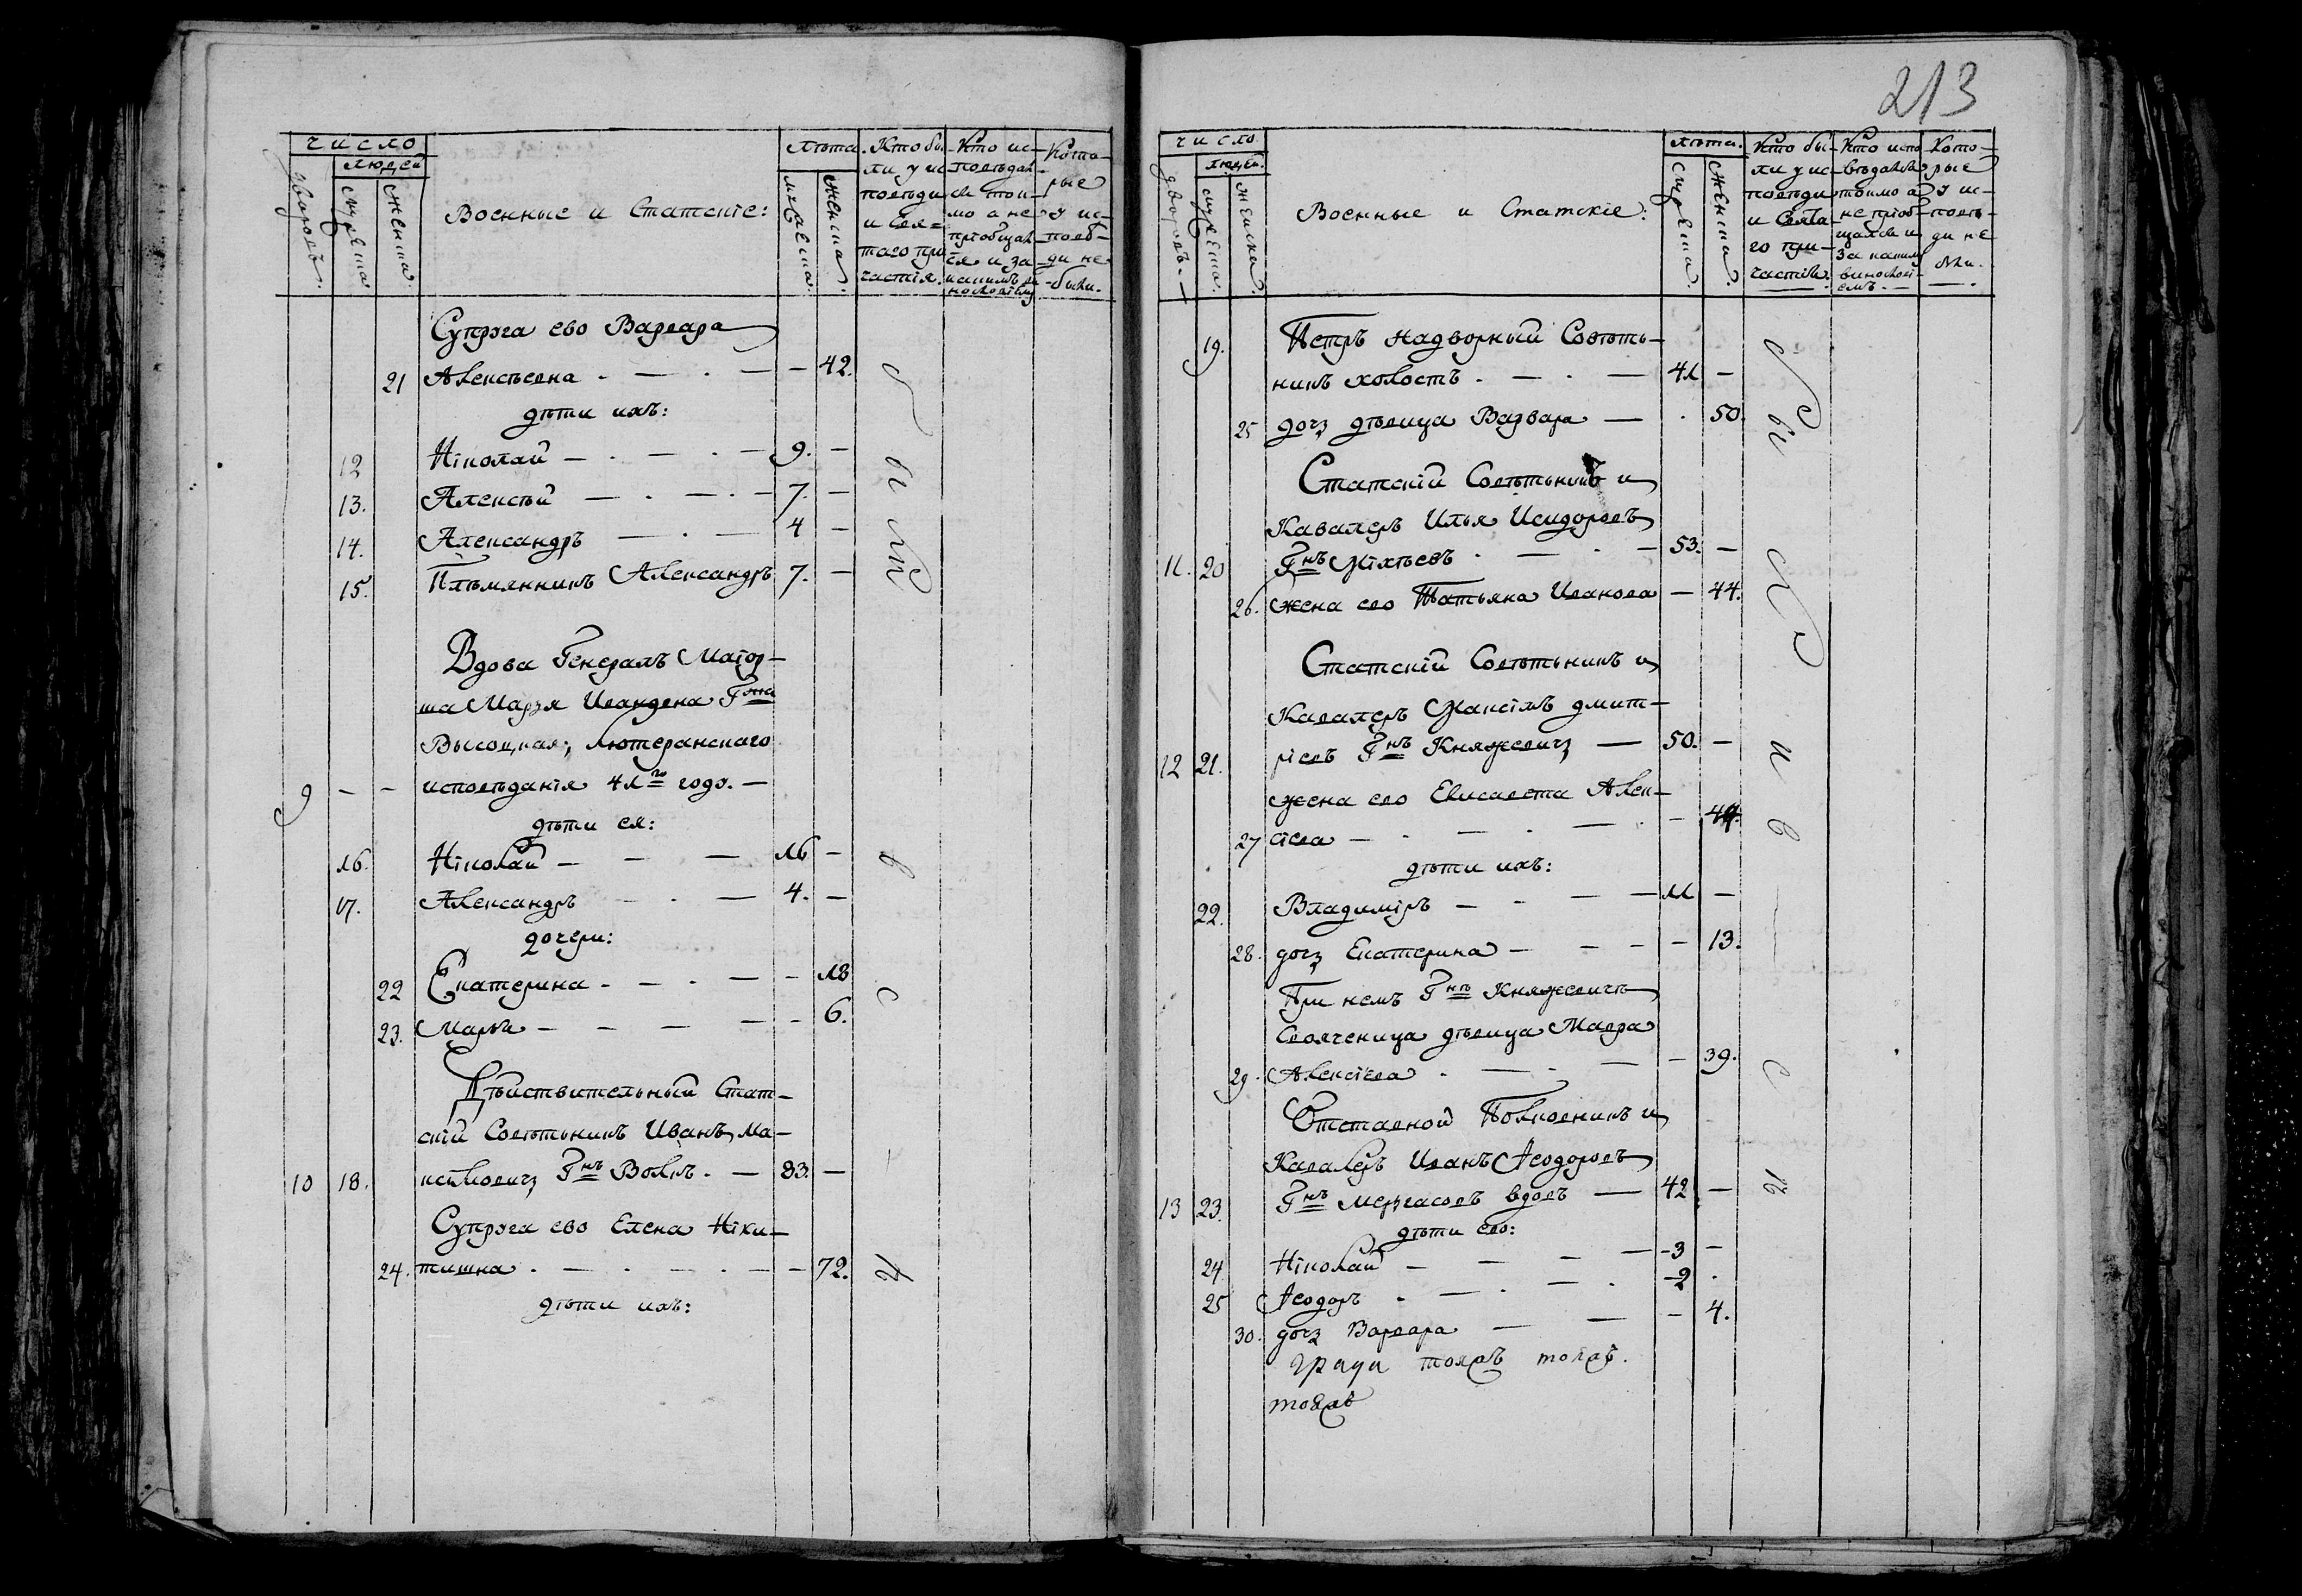 число
людей
дворовъ.
мужеска.
женска.
Военные и Статскіе:
лѣта.
мужеска.
женска.
Кто бы-
ли у ис-
повѣди
и Свя=
таго при
частія.
Кто ис-
повѣдал
ся токи-
мо а не
пріобщал
ся и за
какимъ ви
нословіем
Кото-
рые
у ис-
повѣ-
ди не
были.
Супруга ево Варвара
21 Алексѣевна . — . — — 42.
дѣти ихъ:
12 Ніколай — . — . — 9. —
13. Алексѣй — . — . — 7. —
14. Александръ — . — 4 —
15. Племянникъ Александръ 7. —
Вдова Генералъ Маіор-
ша Марья Ивановна Гжа
Высоцкая, лютеранскаго
9 — — исповѣданія 41го году. —
дѣти ея:
16. Ніколай — — — 16 —
17. Александръ — . — 4. —
дочери:
22 Екатерина . — . — — 18
23. Марья — — — — — 6.
Дѣйствительный Стат-
скій Совѣтникъ Иванъ Ма-
10 18. Гнъ Волкъ . — 83. —
Супруга ево Елена Ніки-
24. тишна . — . — . — — 72.
дѣти ихъ:
были
всѣ
213
число
людей.
дворовъ.
мужеска.
женска.
Военные и Статскіе:
лѣта.
мужеска.
женска.
Кто бы-
ли у ис-
повѣди
и Свята-
го при-
частія.
Кто испо
вѣдался
токмо а
не пріоб-
щался и
за какимъ
винослові-
емъ. —
Кото-
рые
у ис-
повѣ-
ди не
были.
19. Петръ Надворный Совѣт-
никъ холостъ . — . — 41 —
25 дочь дѣвица Варвара — . 50.
Статскій Совѣтникъ и
Кавалеръ Илья Исидоровъ
11. 20 Гнъ Міхѣевъ . — . — 53. —
26. жена ево Татьяна Иванова — 44.
Статскій Совѣтникъ и
Кавалеръ Максімъ Дмит-
12 21. ріевъ Гнъ Княжевичь — 50. —
жена ево Елисавета Алек-
27 сіева — . — . — . — 44.
дѣти ихъ:
22. Владиміръ — — — — 11 —
28. дочь Екатерина — — — — 13.
При немъ Гнъ Княжевичъ
Свояченица дѣвица Мавра
29. Алексіева . — . — — 39.
Отставной Полковникъ и
Кавалеръ Иванъ Ѳеодоровъ
13 23. Гнъ Мергасовъ вдовъ — 42. —
дѣти ево:
24 Ніколай — — — — 3 —
25 Ѳеодоръ . — . — . — 2 .
30. дочь Варвара — — — 4.
были
всѣ